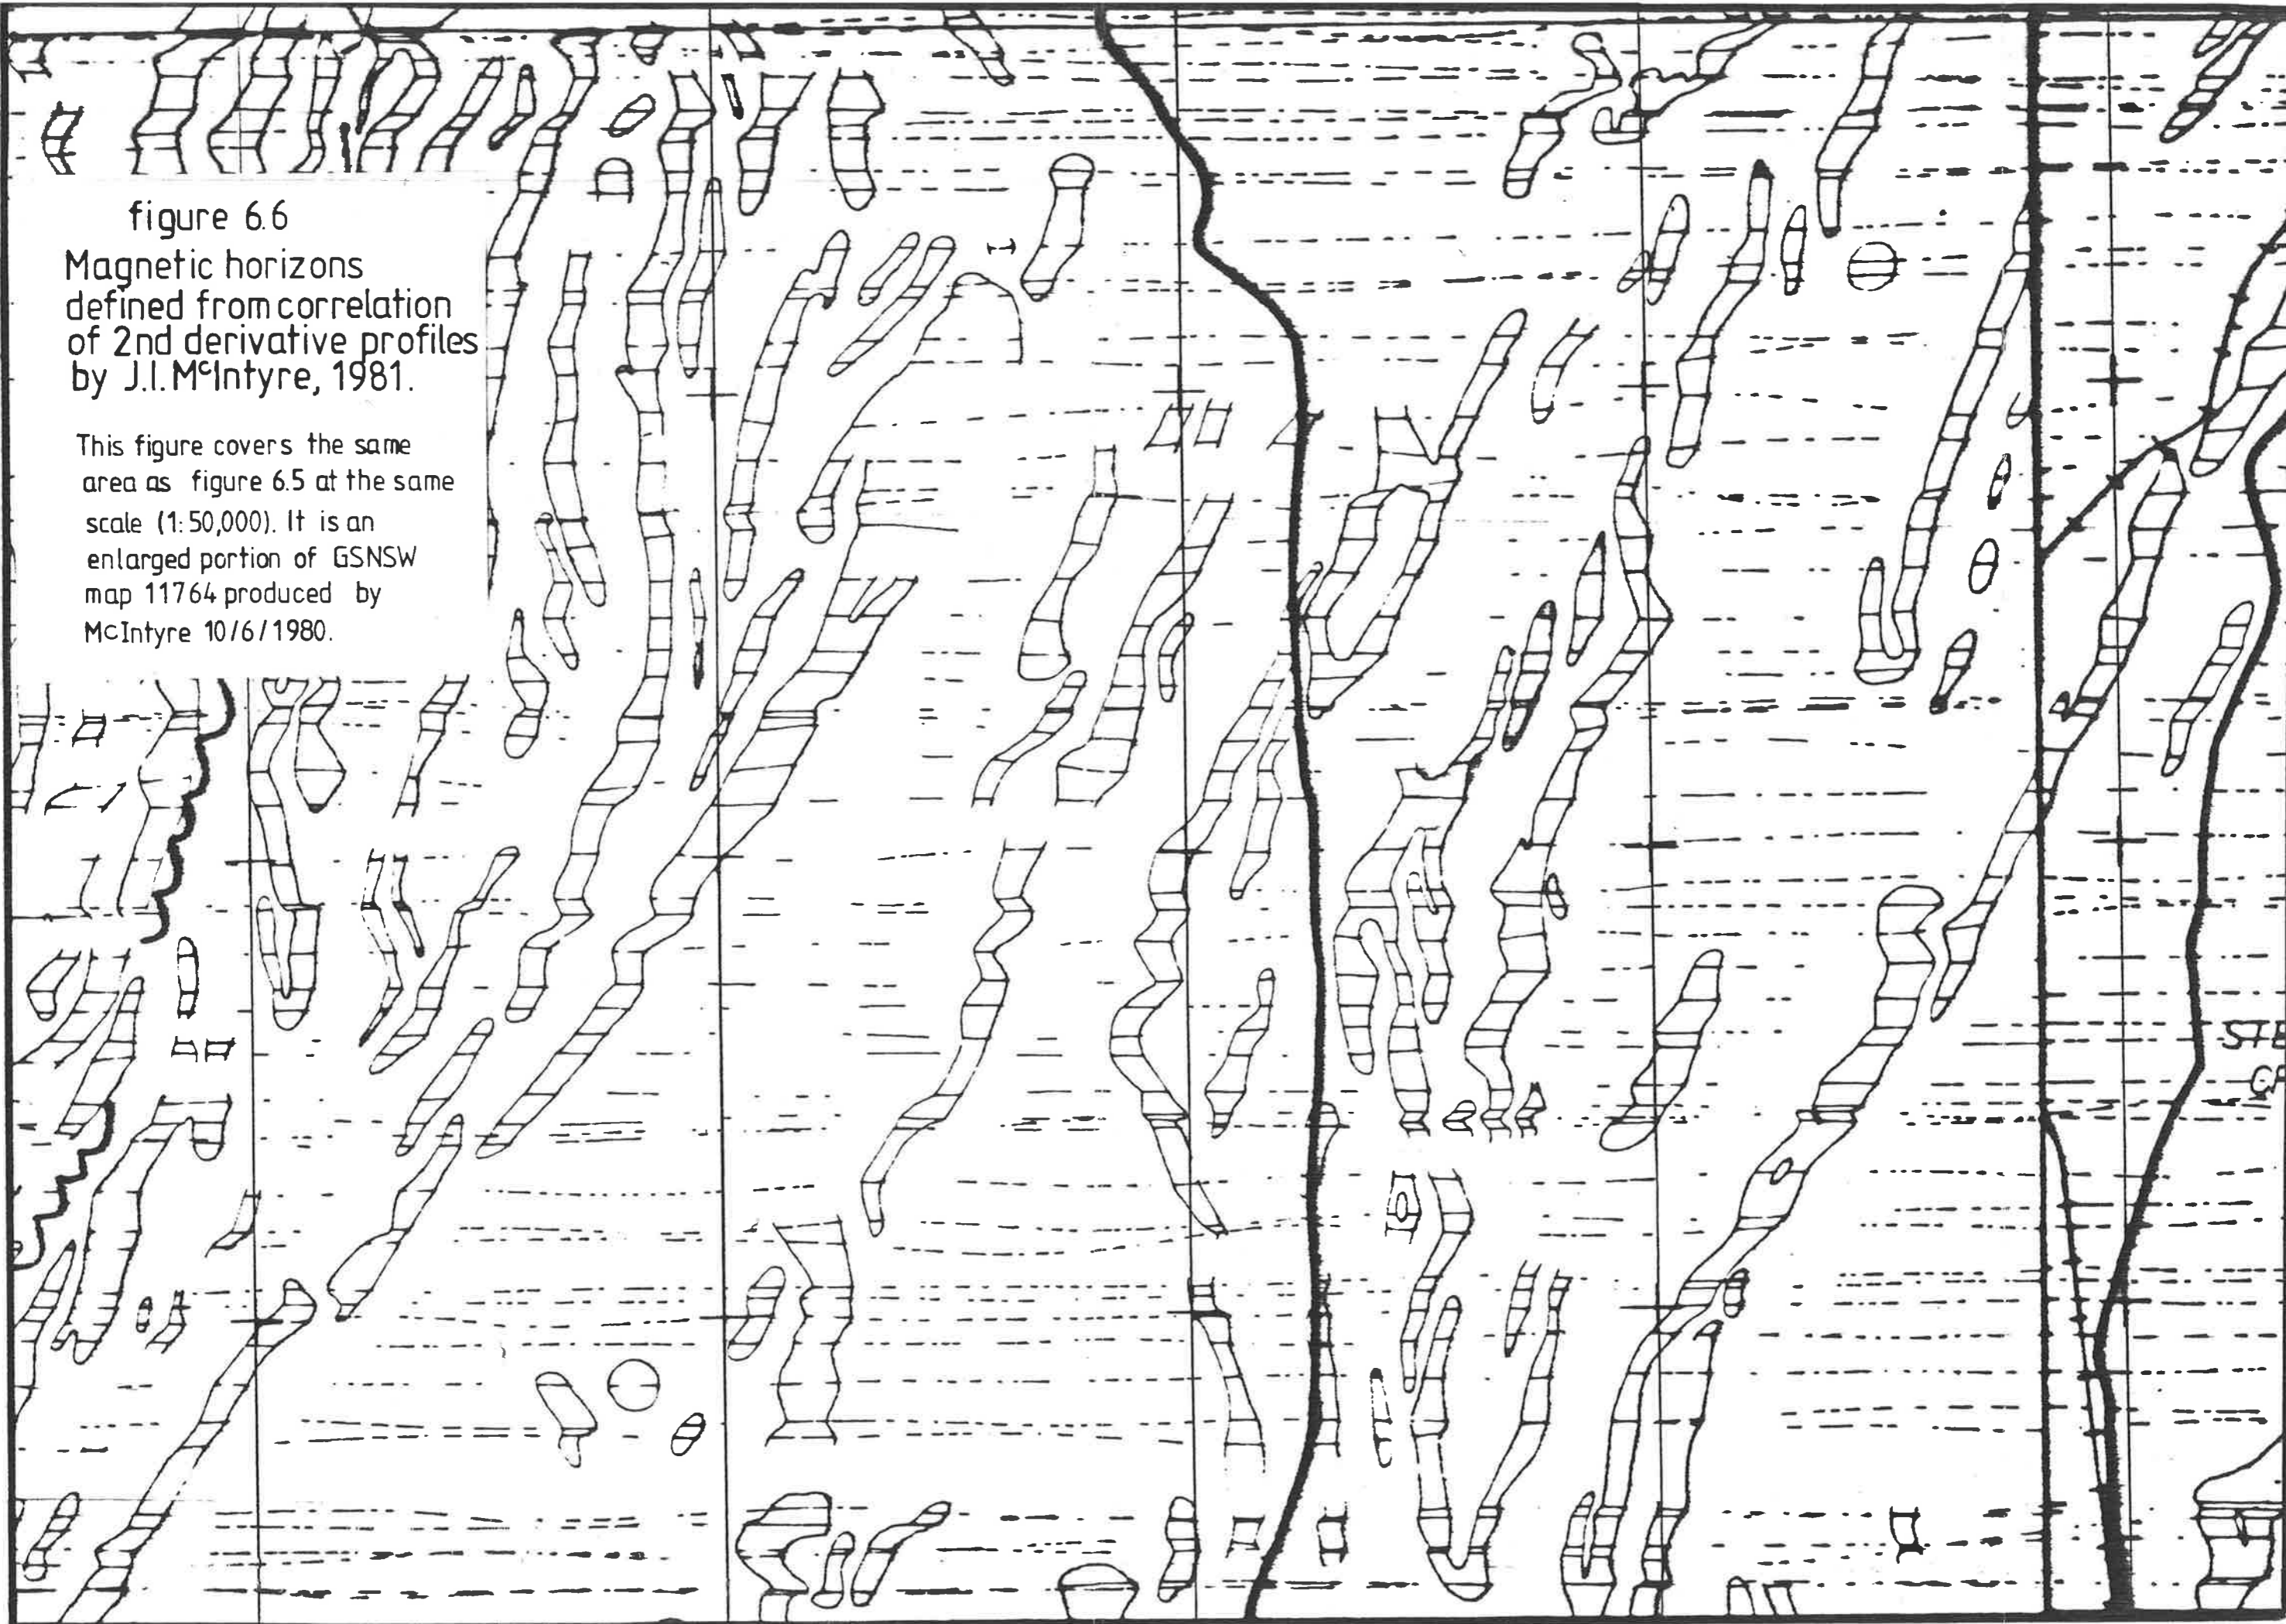 figure 6.6
Magnetic horizons
defined from correlation
of 2nd derivative profiles
by J.I. McIntyre, 1981.
This figure covers the same
area as figure 6.5 at the same
scale (1:50,000). It is an
enlarged portion of GSNSW
map 11764 produced by
McIntyre 10/6/1980.